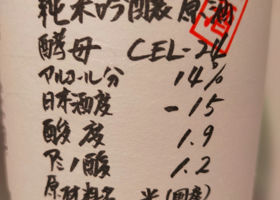 純米吟醸原酒
酵母 CEL-24
アルコール分 14%
日本酒度 -15
酸度 1.9
アミノ酸 1.2
原材料名 米(国産)